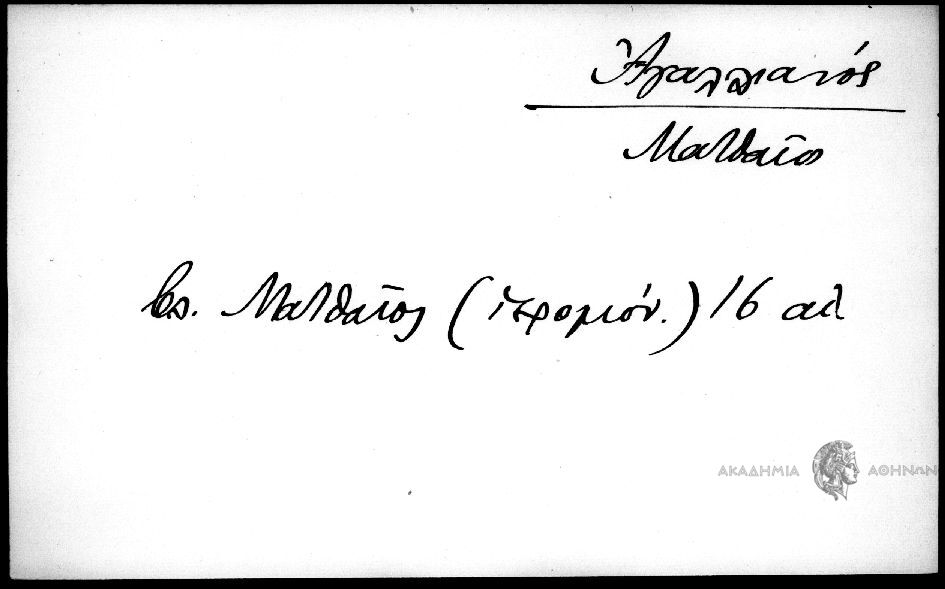 Ἀγαλλιανός
Ματθαῖος
βλ. Ματθαῖος (ἱερομόν.) 16 αἰ
ΑΚΑΔΗΜΙΑ ΑΘΗΝΩΝ